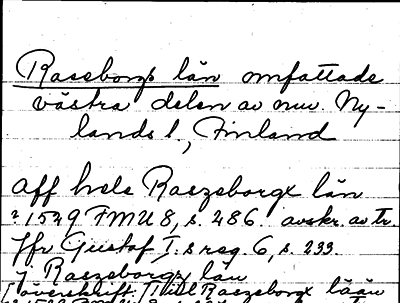 Raseborgs län omfattade
västra delen av nuv. Ny-
lands l., Finland
Aff hele Raszeborgx län
1529 FMU 8, s. 286. avskr. av tr.
Jfr Gustaf I:s reg. 6, s. 233.
j Raszeborgx län
överskrift. Till Raszeborgx lään